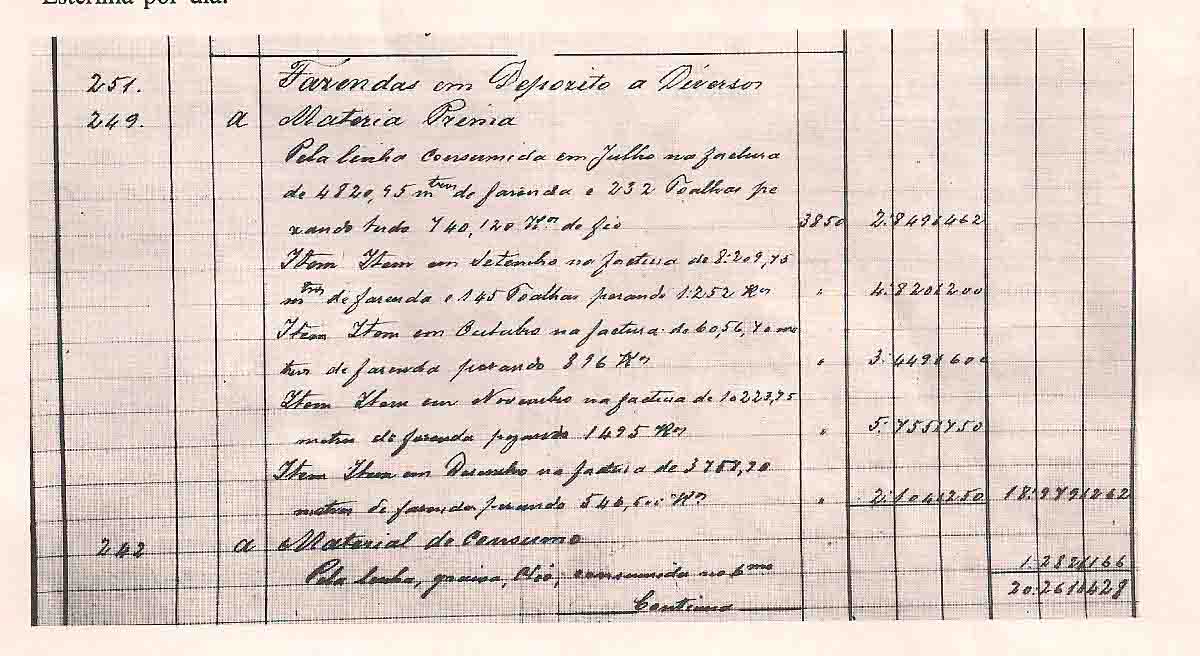 Esterlina por dia.
251. Fazendas em Deposito a Diversos
249. a Materia Prima
Pela linha consumida em Julho na factura
de 4820,95 mtros de fazenda e 232 Toalhas pe
zando tudo 740,120 Kos de fio 3850 2:849$462
Item Item em Setembro na factura de 8:209,75
mtros de fazenda e 145 Toalhas pezando 1:252 Kos " 4:820$200
Item Item em Outubro na factura de 6056,70 me
tros de fazenda pezando 896 Kos " 3:449$600
Item Item em Novembro na factura de 10223,75
metros de fazenda pezando 1495 Kos " 5:755$750
Item Item em Dezembro na factura de 3757,90
metros de fazenda pezando 546,500 Kos " 2:104$250 18:979$262
242 a Material de Consumo
Pela lenha, graixa, Oleo, consumida no 6mo 1:282$166
Continua 20:261$428